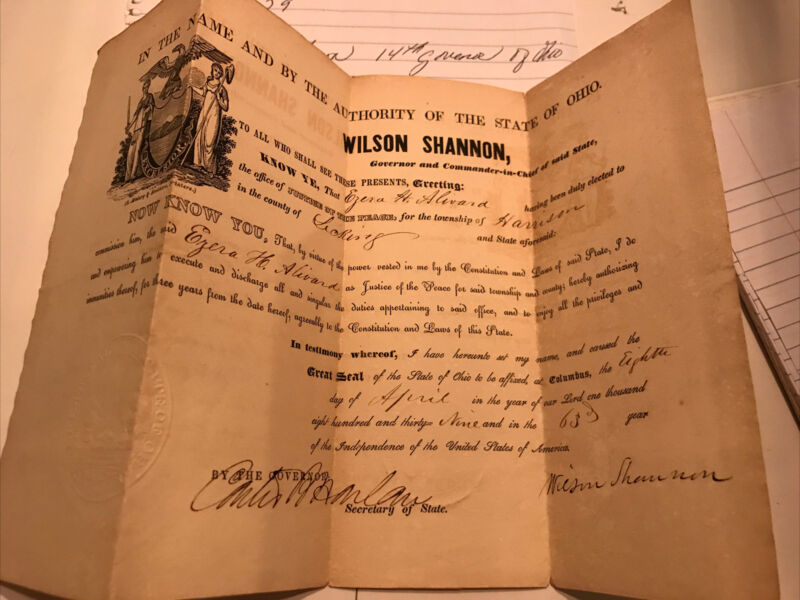 29
14th Governor of Ohio
IN THE NAME AND BY THE AUTHORITY OF THE STATE OF OHIO.
WILSON SHANNON,
Governor and Commander-in-Chief of said State,
TO ALL WHO SHALL SEE THESE PRESENTS, Greeting:
KNOW YE, That Ezera H. Alward having been duly elected to
the office of JUSTICE OF THE PEACE, for the township of Harrison
in the county of Licking and State aforesaid:
NOW KNOW YOU, That, by virtue of the power vested in me by the Constitution and Laws of said State, I do
commission him, the said Ezera H. Alward as Justice of the Peace for said township and county; hereby authorizing
and empowering him to execute and discharge all and singular the duties appertaining to said office, and to enjoy all the privileges and
immunities thereof, for three years from the date hereof; agreeably to the Constitution and Laws of this State.
In testimony whereof, I have hereunto set my name, and caused the
Great Seal of the State of Ohio to be affixed, at Columbus, the Eighth
day of April in the year of our Lord one thousand
eight hundred and thirty= Nine and in the 63d year
of the Independence of the United States of America.
BY THE GOVERNOR
Wilson Shannon
Carter B Harlan
Secretary of State.